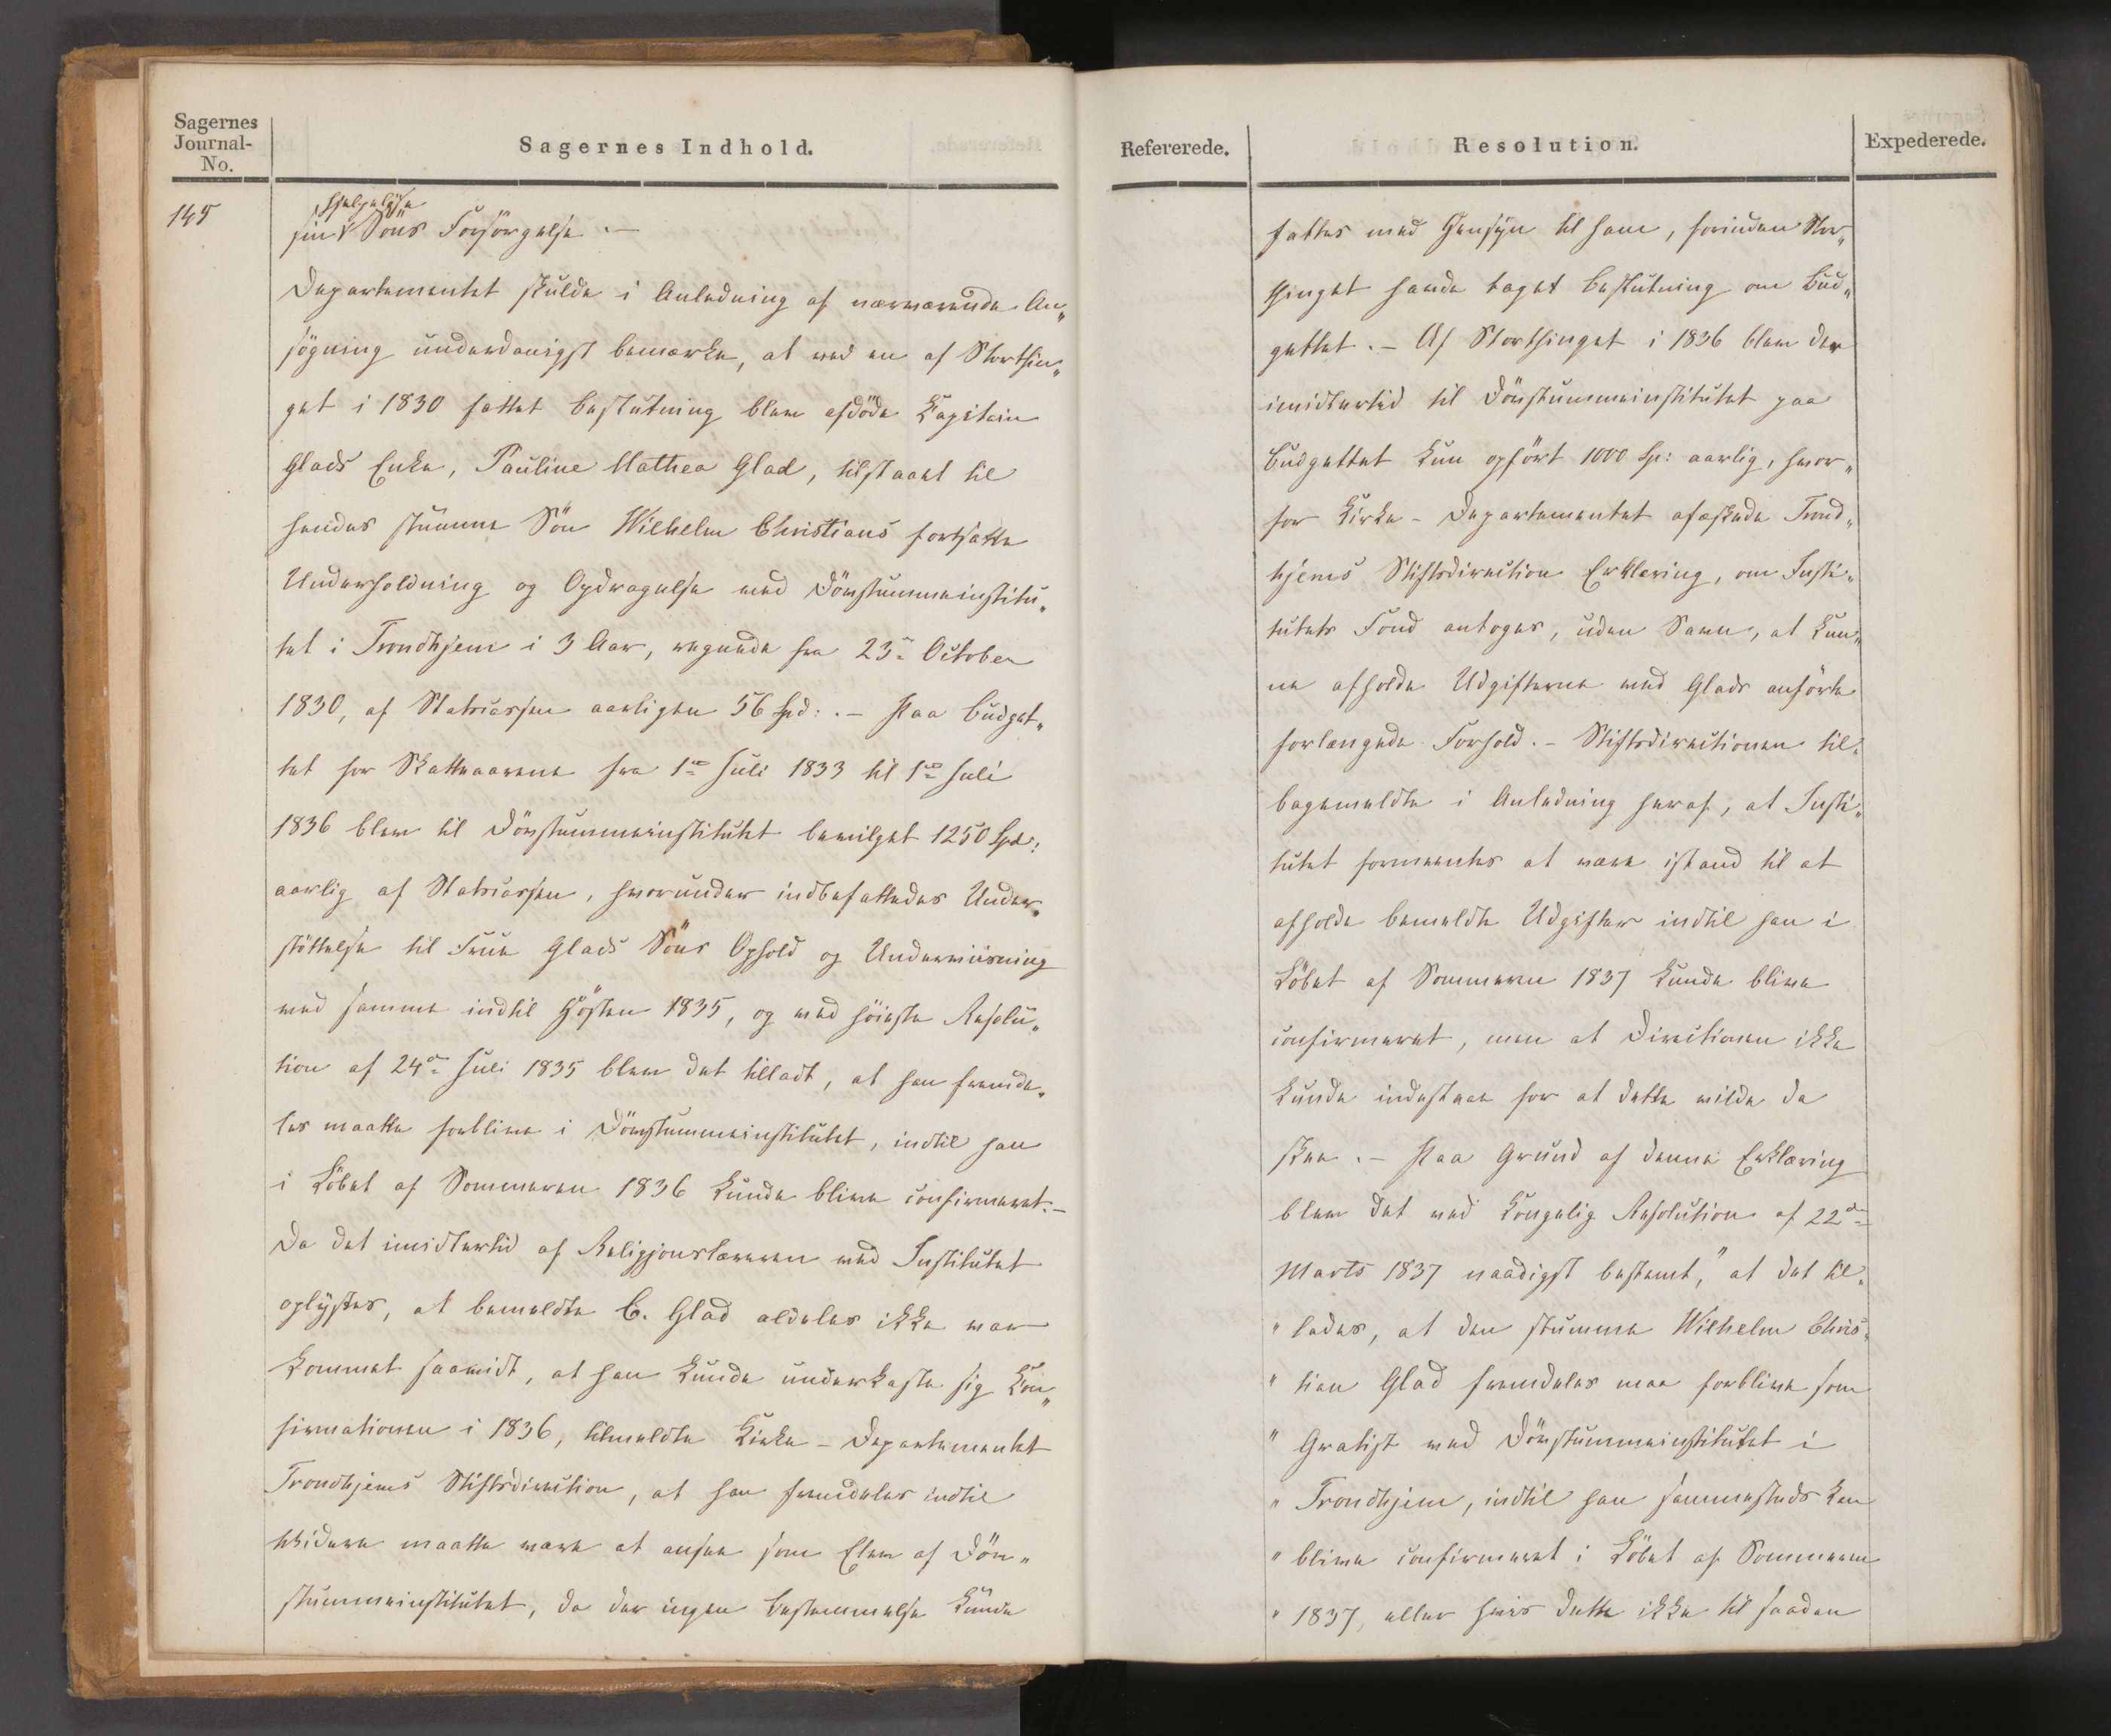 Sagernes
Journal-
No.
Sagernes Indhold.
145
hjelpeløse
sin Søns Forsørgelse. —
Departementet skulde i Anledning af nærværende An„
søgning underdanigst bemærke, at ved en af Storthin„
get i 1830 fattet Beslutning blev afdøde Kapitain
Glads Enke, Pauline Mathea Glad, tilstaaet til
hendes stumme Søn Wilhelm Christians fortsatte
Underholdning og Opdragelse ved Døvstummeinstitu„
tet i Trondhjem i 3 Aar, regnede fra 23de October
1830, af Statscassen aarligen 56 Spd:. — Paa Budget„
tet for Skatteaarene fra 1ste Juli 1833 til 1ste Juli
1836 blev til Døvstummeinstitutet bevilget 1250 Spd:
aarlig af Statscassen, hvorunder indbefattedes Under„
støttelse til Frue Glads Søns Ophold og Underviisning
ved samme indtil Høsten 1835, og ved høieste Resolu„
tion af 24de Juli 1835 blev det tilladt, at han fremde„
les maatte forblive i Døvstummeinstitutet, indtil han
i Løbet af Sommeren 1836 kunde blive confirmeret. —
Da det imidlertid af Religionslæreren ved Institutet
oplystes, at bemeldte C. Glad aldeles ikke var
kommet saavidt, at han kunde underkaste sig Kon„
firmationen i 1836, tilmeldte Kirke-Departementet
Trondhjems Stiftsdirection, at han fremdeles indtil
Videre maatte være at ansee som Elev af Døv„
stummeinstitutet, da der ingen Bestemmelse kunde
Refererede.
Resolution.
Expederede.
fattes med Hensyn til ham, forinden Stor„
thinget havde taget Beslutning om Bud„
gettet. — Af Storthinget i 1836 blev der
imidlertid til Døvstummeinstitutet paa
Budgettet kun opført 1000 Sp: aarlig, hvor„
for Kirke-Departementet afæskede Trond„
hjems Stiftsdirection Erklæring, om Insti„
tutets Fond antoges, uden Savn, at kun„
ne afholde Udgifterne ved Glads anførte
forlængede Forhold. — Stiftsdirectionen til„
bagemeldte i Anledning heraf, at Insti„
tutet formeentes at være istand til at
afholde bemeldte Udgifter indtil han i
Løbet af Sommeren 1837 kunde blive
confirmeret, men at Directionen ikke
kunde indestaae for at dette vilde da
skee. — Paa Grund af denne Erklæring
blev det ved Kongelig Resolution af 22de
Marts 1837 naadigst bestemt, „at det til„
" lades, at den stumme Wilhelm Chris„
" tian Glad fremdeles maa forblive som
" Gratist ved Døvstummeinstitutet i
" Trondhjem, indtil han sammesteds kan
" blive confirmeret i Løbet af Sommeren
" 1837, eller hvis dette ikke til saadan